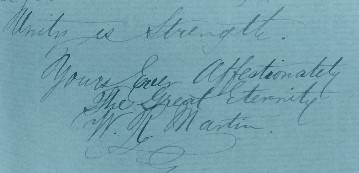 Unity is Strength.
Yours Ever Affectionately
The Great Eternity
W. R. Martin.